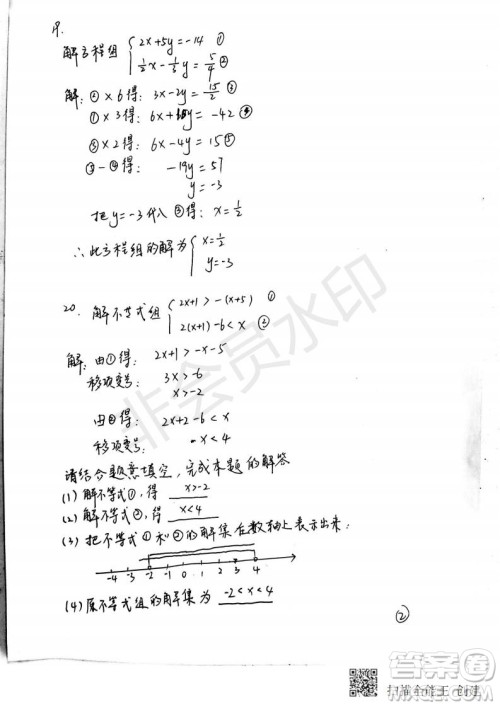 19.
解方程组 { 2x+5y=-14 ①
1/2x-1/3y=5/4 ②
解: ②×6得: 3x-2y=15/2 ③
①×3得: 6x+15y=-42 ④
③×2得: 6x-4y=15 ⑤
⑤-④得: -19y=57
y=-3
把y=-3代入③得: x=1/2
∴此方程组的解为 { x=1/2
y=-3
20. 解不等式组 { 2x+1>-(x+5) ①
2(x+1)-6<x ②
解: 由①得: 2x+1>-x-5
移项变号: 3x>-6
x>-2
由②得: 2x+2-6<x
移项变号: x<4
请结合题意填空,完成本题的解答
(1) 解不等式①,得 x>-2
(2) 解不等式②,得 x<4
(3) 把不等式①和②的解集在数轴上表示出来:
-4 -3 -2 -1 0 1 2 3 4
(4) 原不等式组的解集为 -2<x<4
②
非会员水印
扫描全能王 创建